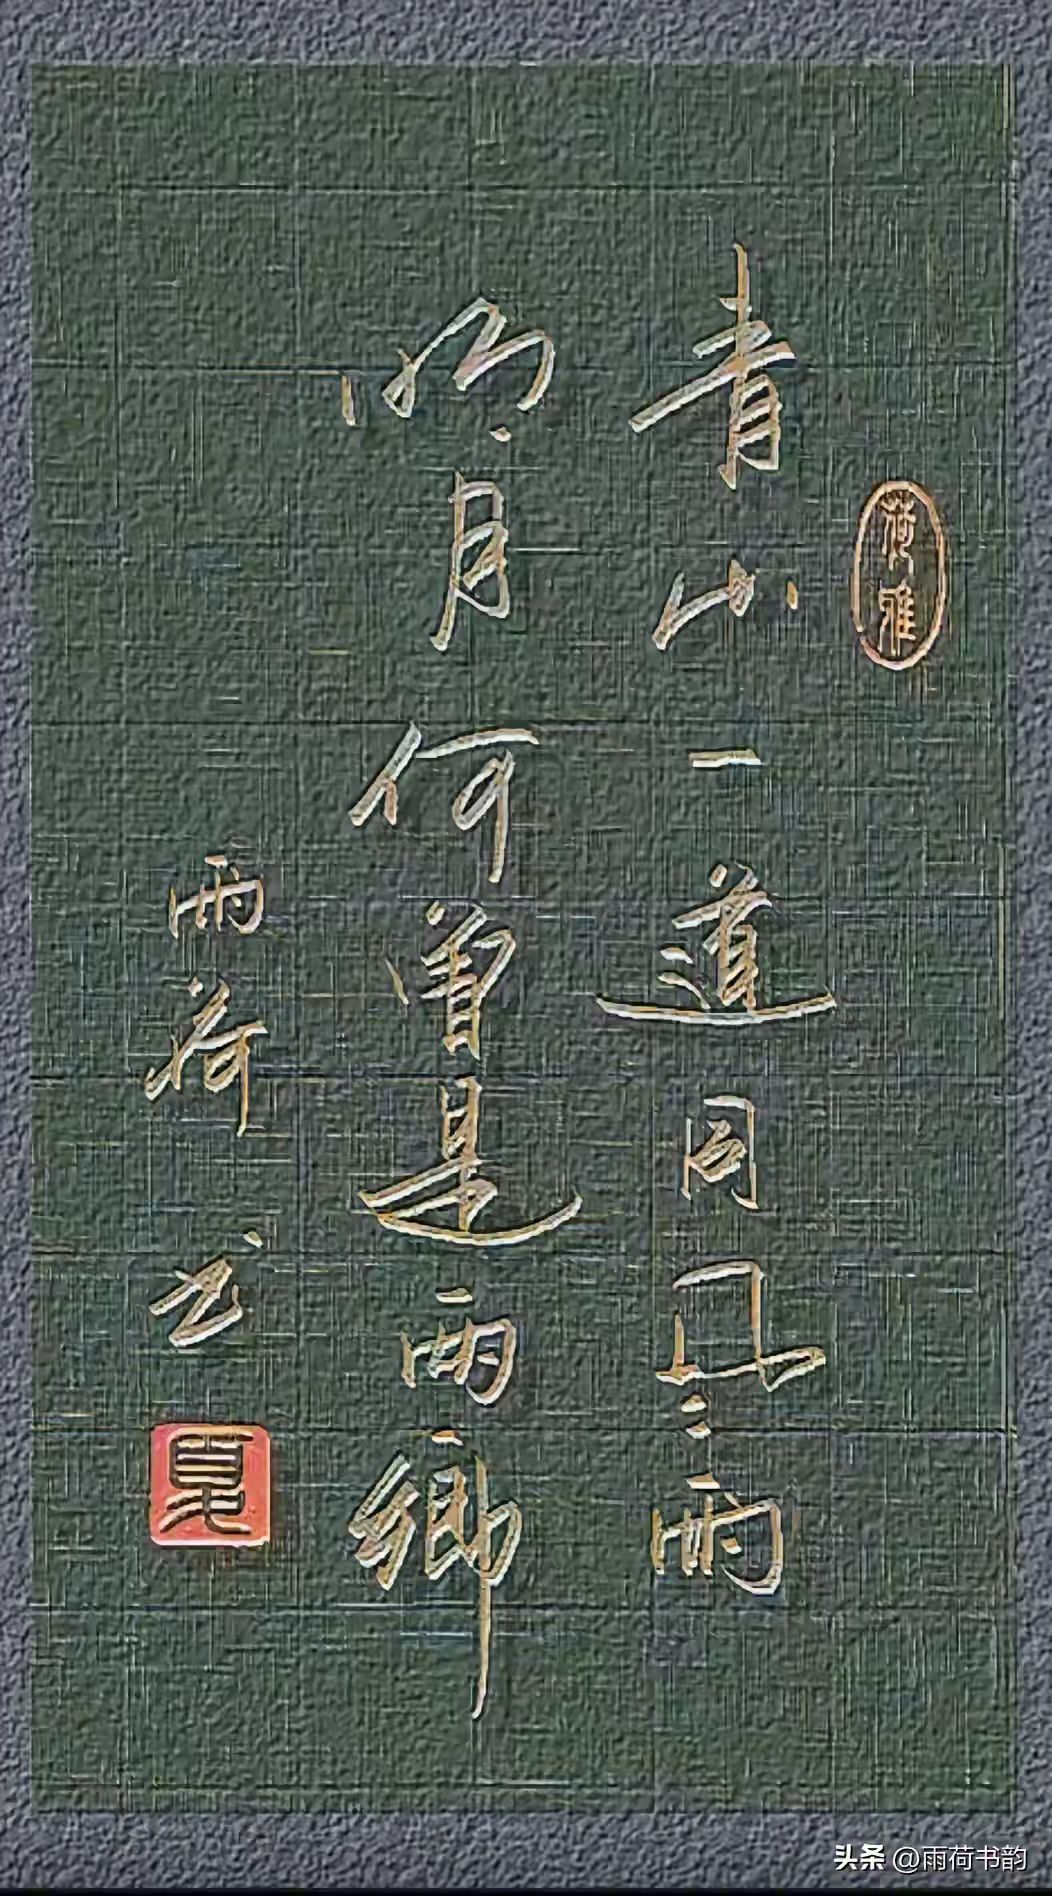 荷雅
青山一道同雲雨
明月何曾是兩鄉
雨荷书
夏
头条 @雨荷书韵